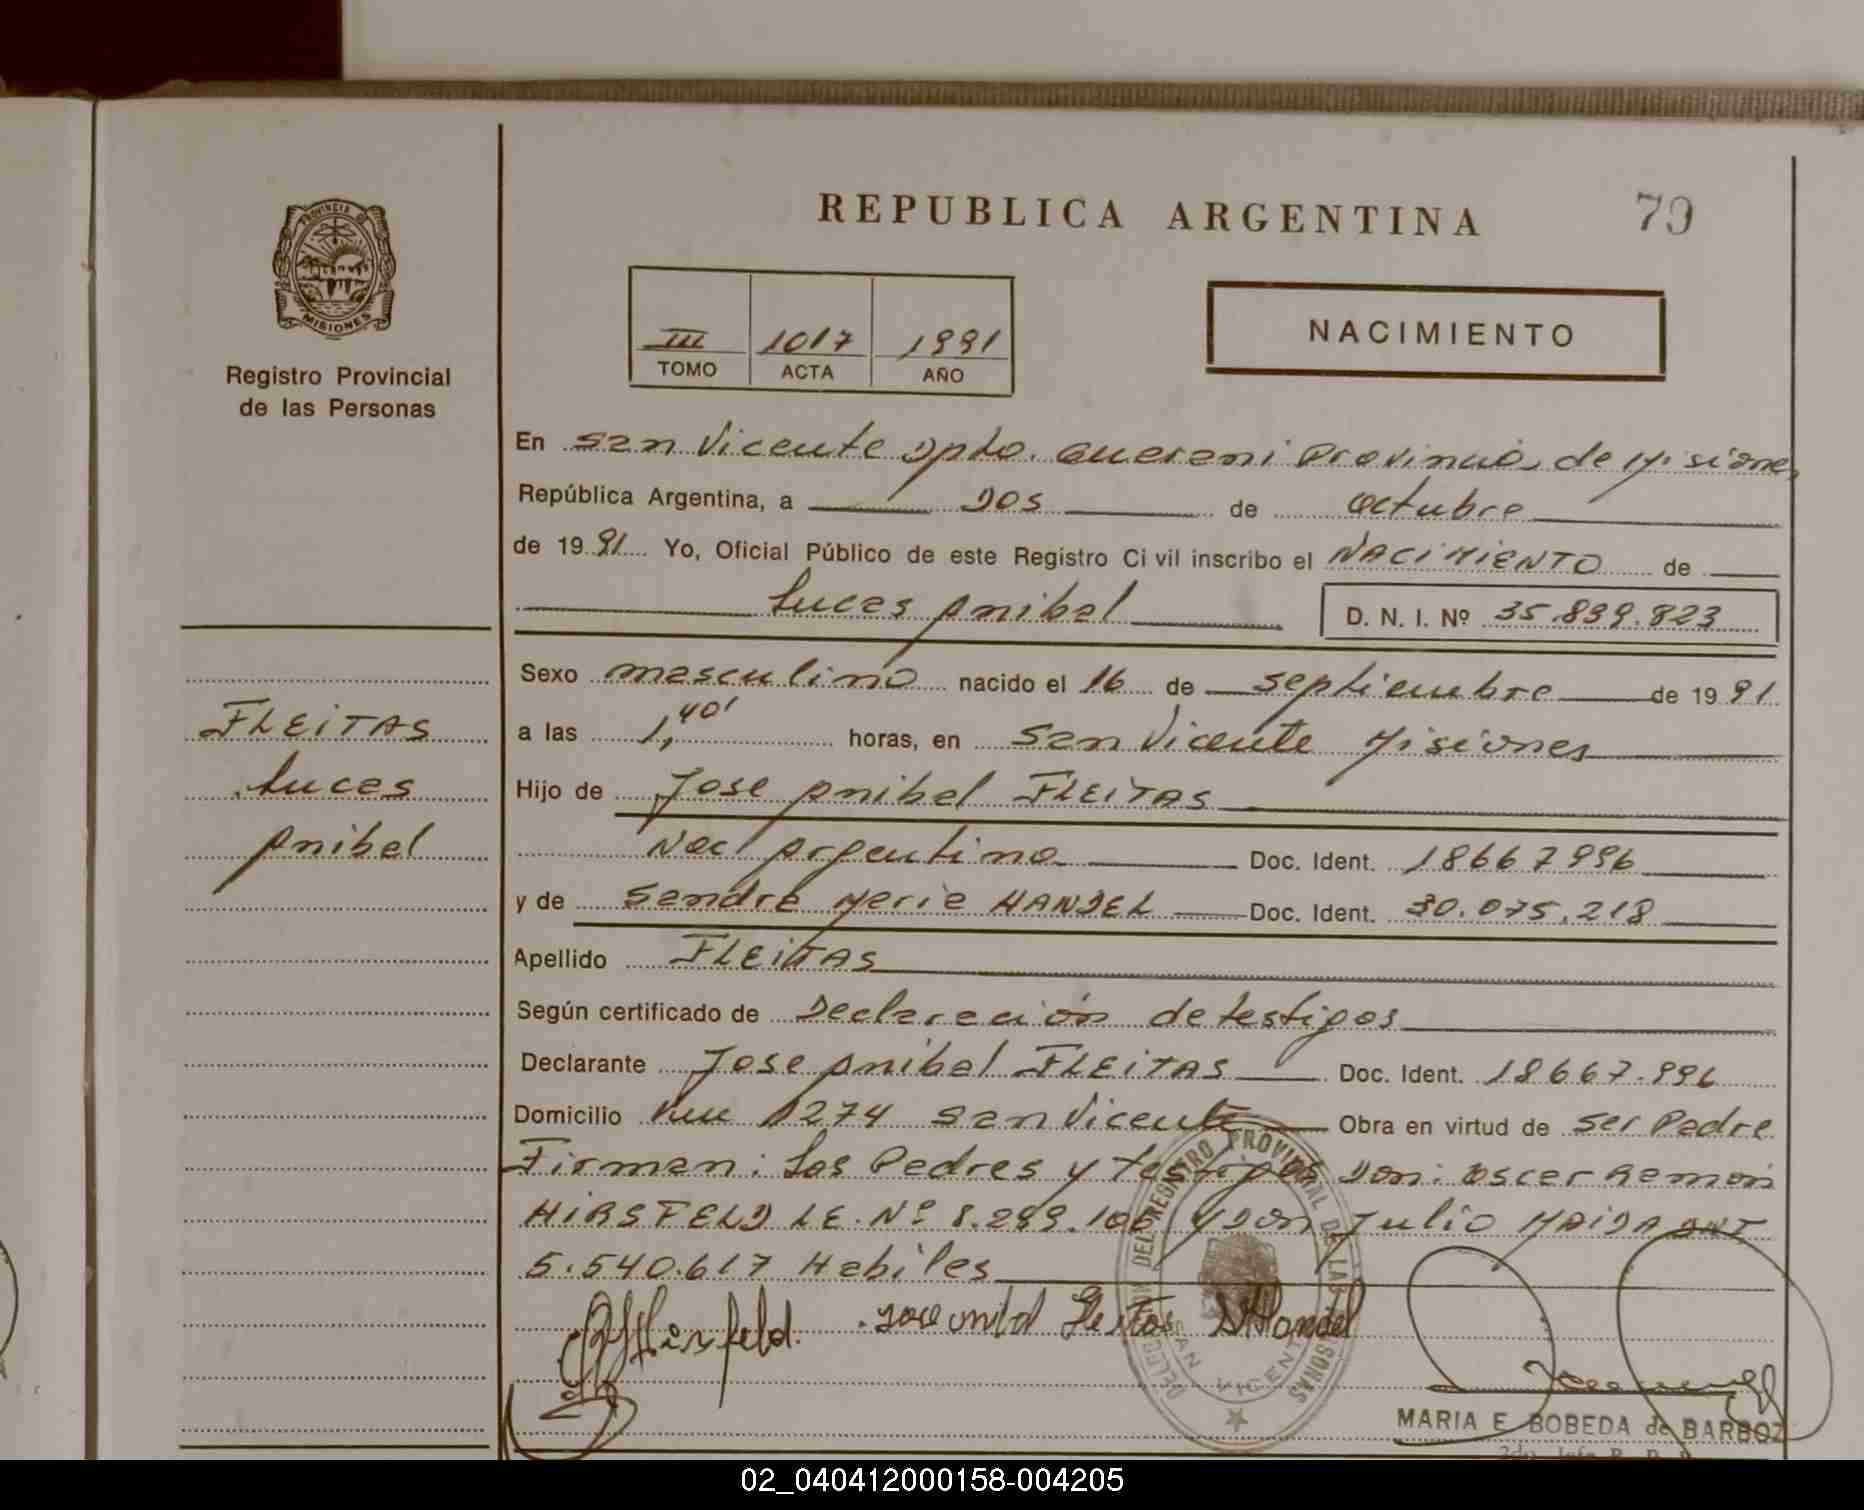 REPUBLICA ARGENTINA
79
PROVINCIA DE
MISIONES
Registro Provincial
de las Personas
III 1017 1991
TOMO ACTA AÑO
NACIMIENTO
En San Vicente Dpto. Guarani Provincia de Misiones
República Argentina, a Dos de Octubre
de 1991 Yo, Oficial Público de este Registro Civil inscribo el NACIMIENTO de
Lucas Anibal D. N. I. Nº 35.839.823
Sexo masculino nacido el 16 de septiembre de 1991
a las 1,40' horas, en San Vicente Misiones
Hijo de Jose Anibal FLEITAS
Nac Argentino Doc. Ident. 18667996
y de Sandra Maria HANDEL Doc. Ident. 30.075.218
Apellido FLEITAS
Según certificado de Declaración de testigos
Declarante Jose Anibal FLEITAS Doc. Ident. 18667.996
Domicilio Km 1274 San Vicente Obra en virtud de Ser Padre
Firman: Los Padres y testigos Don: Oscar Ramón
HIRSFELD L.E. Nº 8.299.106 y Don Julio MAIDA DNI
5.540.617 Habiles
FLEITAS
Lucas
Anibal
Hirsfeld. Jose Anibal Fleitas S Handel
DELEGACION DEL REGISTRO PROVINCIAL DE LAS PERSONAS
SAN VICENTE
MARIA E. BOBEDA de BARBOZ
02_040412000158-004205